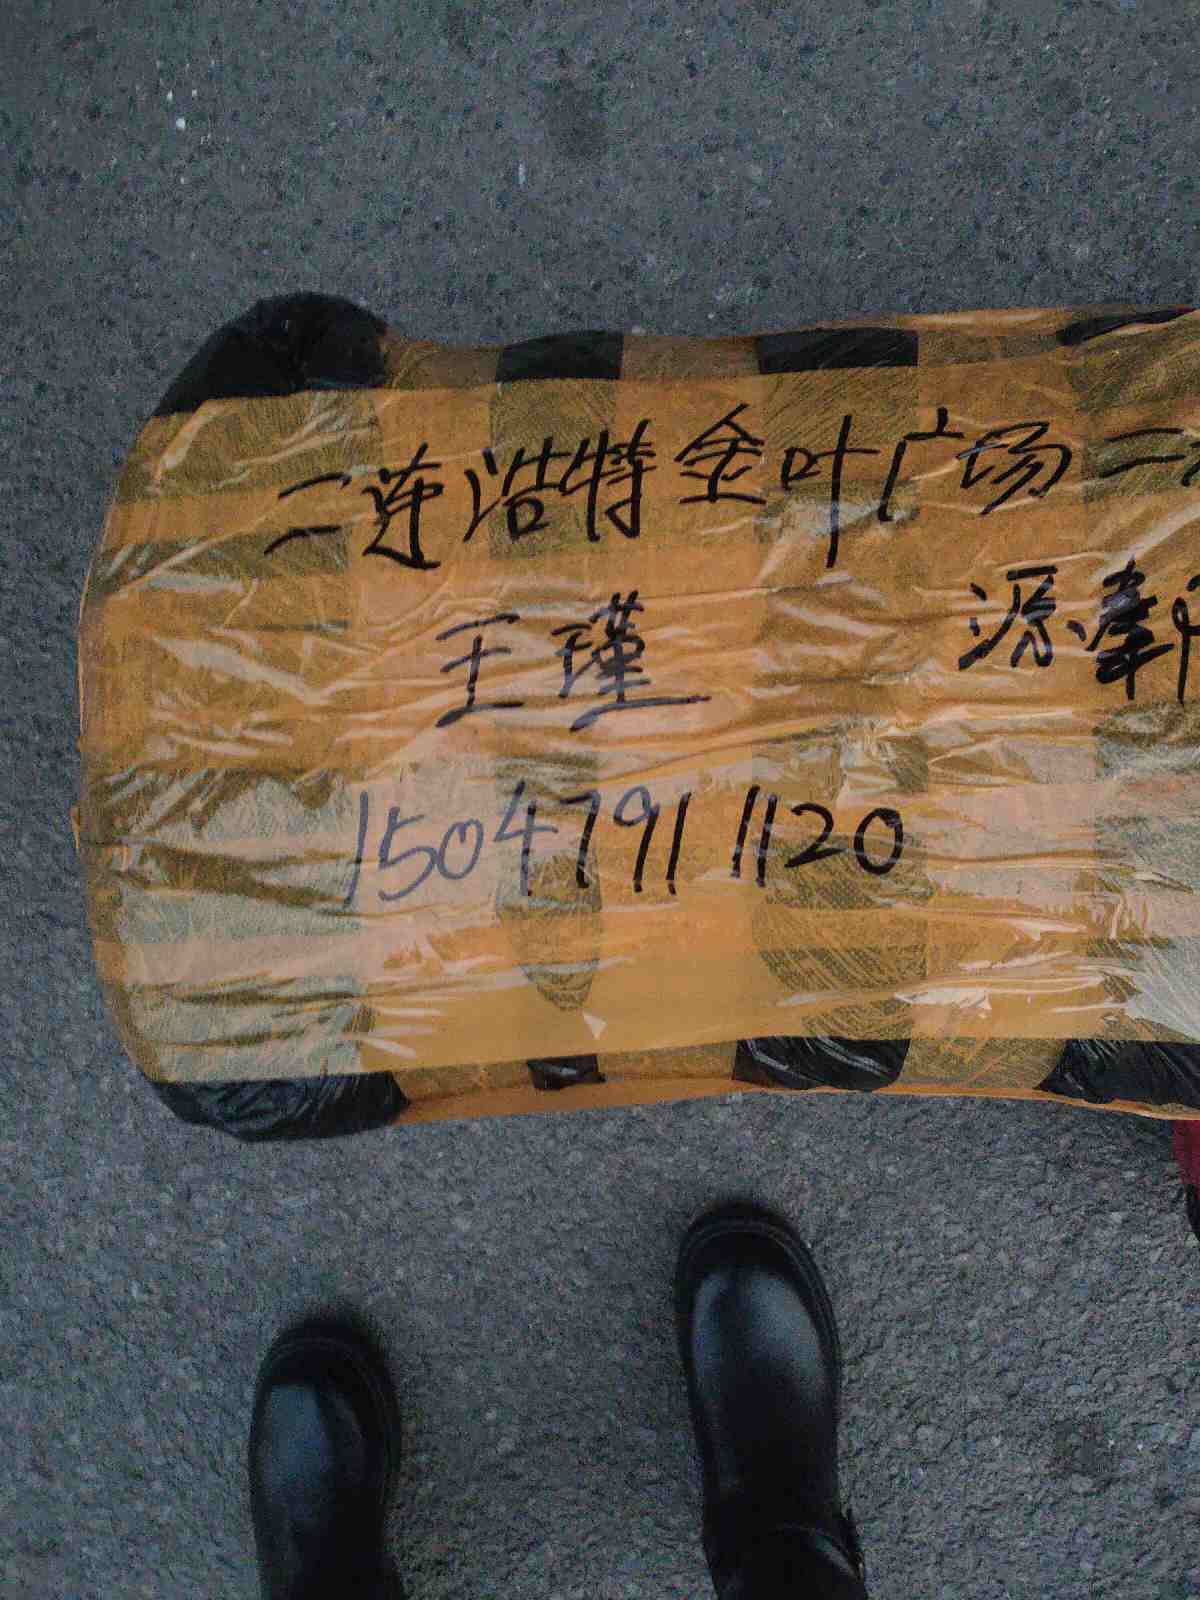 二连浩特金叶广场二
王瑾
源
15047911120